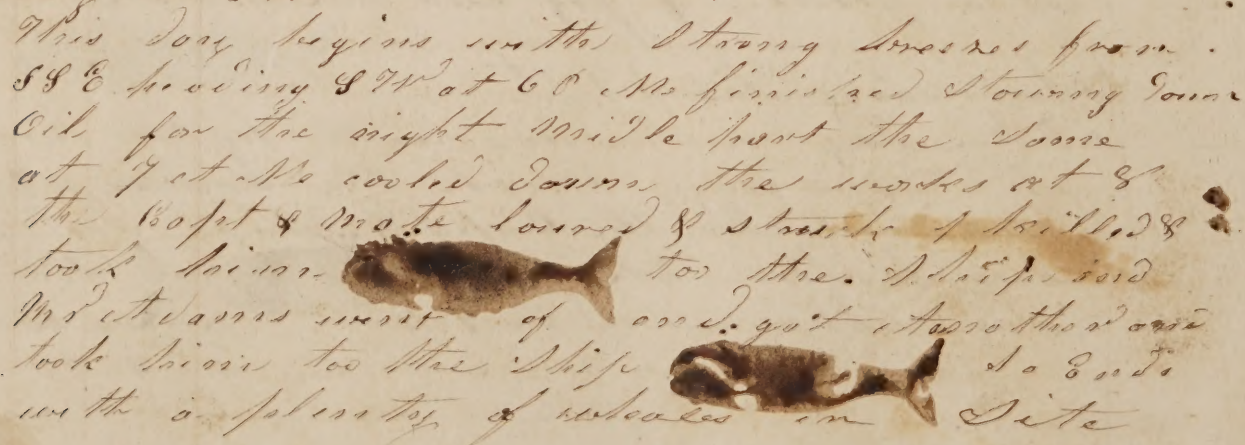 This day begins with Strong breezes from
SSE heading SW at 6 P M finished Stowing Down
Oil for the night Midle part the Same
at 7 A M cooled down the works at 8
the Capt & Mate loured & struck 1 killed &
took him too the Ship and
Mr Adams went of and got Another one
took him too the Ship So Ends
with a plenty of whales in Site